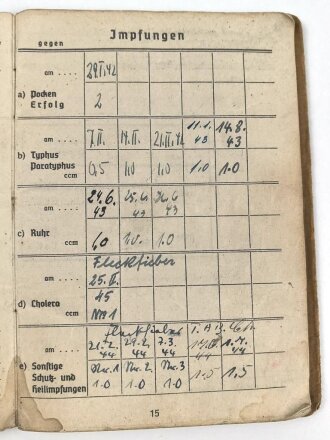 Impfungen
gegen
am .... 29.I.42
a) Pocken
Erfolg 2
am .... 7.II. 14.II. 21.II.42 11.1. 43 14.8. 43
b) Typhus
Paratyphus
ccm 0,5 1,0 1,0 1.0 1.0
am .... 24.6. 43 25.6. 43 26.6 43
c) Ruhr
ccm 1.0
Fleckfieber
am .... 25.II.
d) Cholera 45
ccm
Fleckfieber
am .... 21.2. 44 29.2. 44 7.3. 44 44 44
e) Sonstige Nr. 1 Nr. 2 Nr. 3
Schutz- und
Heilimpfungen 1.0 1.0 1.0 1.5 1.5
15